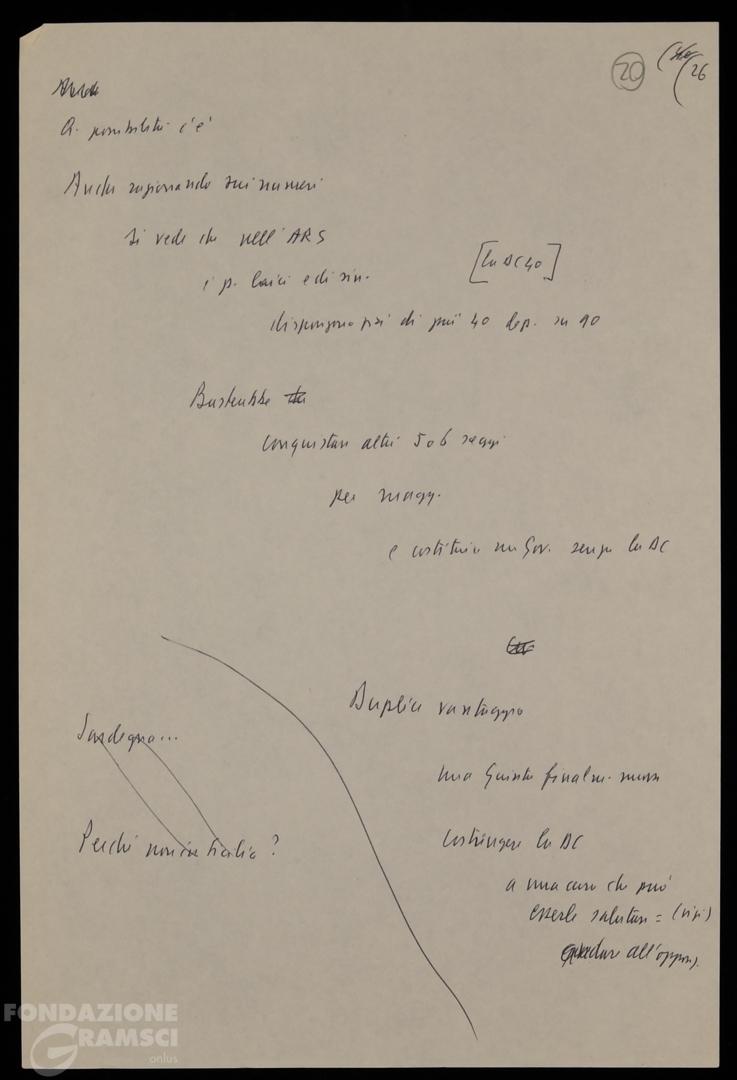 20
26
Q. possibilità c'è
Anche ragionando sui numeri
si vede che nell'ARS
i p. laici e di sin.
[la DC 40]
dispongono già di più 40 dep. su 90
Basterebbe
conquistare altri 5 o 6 seggi
per magg.
e costituire un Gov. senza la DC
Duplice vantaggio
una Giunta finalm. nuova
costringere la DC
a una cura che può
esserle salutare = (risi)
andare all'oppos.
Sardegna...
Perché non in Sicilia?
FONDAZIONE
GRAMSCI
onlus